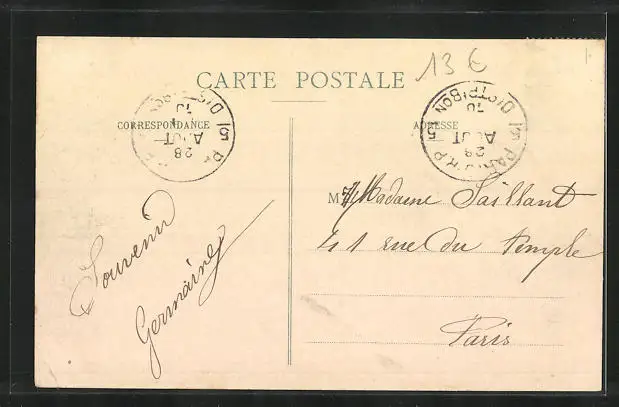 13 €
CARTE POSTALE
CORRESPONDANCE
ADRESSE
PARIS R.P. DISTRIBON
28
AOUT
10
15
15
Madame Saillant
41 rue du Temple
Paris
Souvenir
Germaine